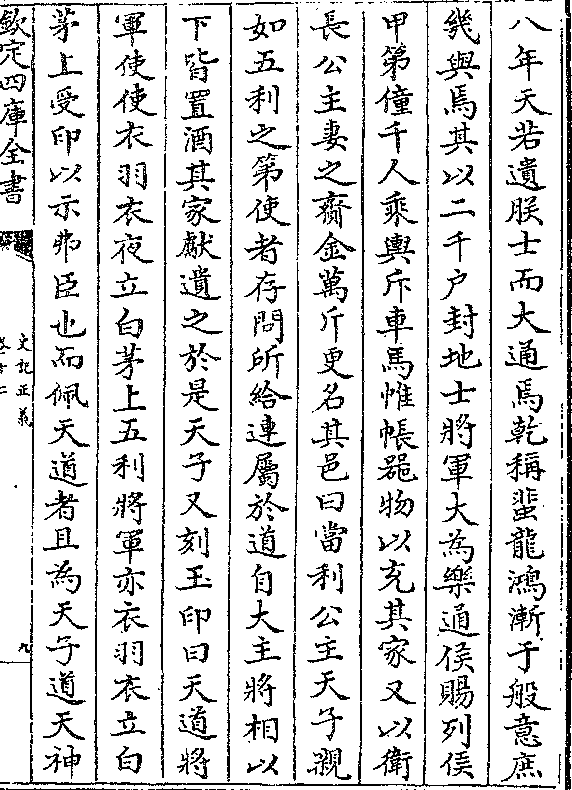 八年天若遺朕士而大通焉乾稱蜚龍鴻漸于般意庶
幾與焉其以二千户封地士將軍大為樂通侯賜列侯
甲第僮千人乘輿斥車馬帷帳器物以充其家又以衛
長公主妻之齎金萬斤更名其邑曰當利公主天子親
如五利之第使者存問所給連屬於道自大主將相以
下皆置酒其家獻遺之於是天子又刻玉印曰天道將
軍使使衣羽衣夜立白茅上五利將軍亦衣羽衣立白
茅上受印以示弗臣也而佩天道者且為天子道天神
欽定四庫全書
史記正義
九